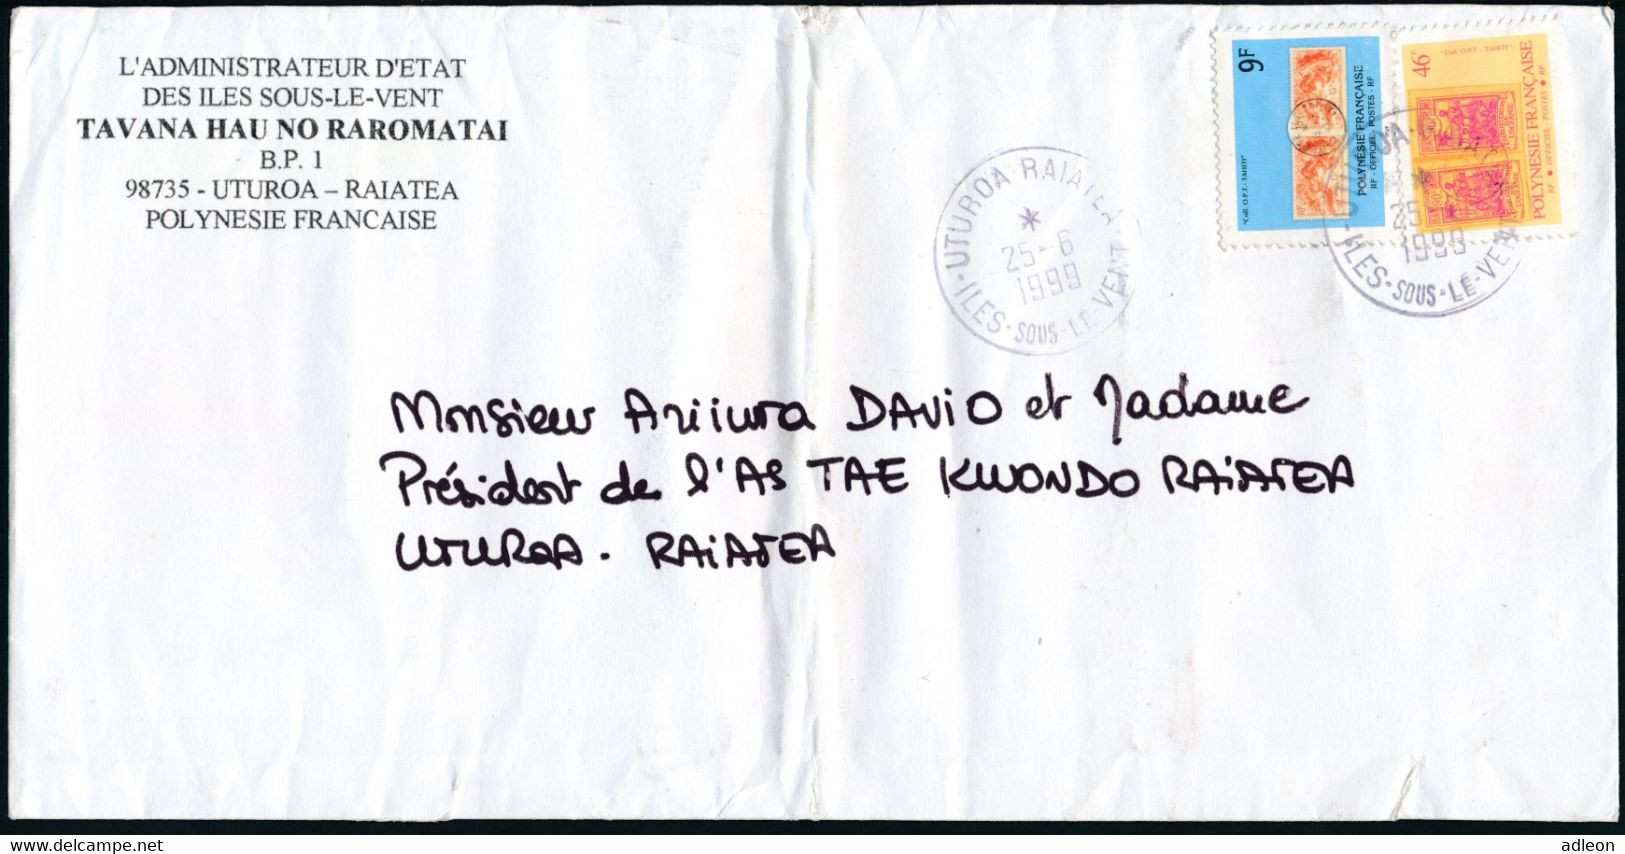 L'ADMINISTRATEUR D'ETAT
DES ILES SOUS-LE-VENT
TAVANA HAU NO RAROMATAI
B.P. 1
98735 - UTUROA – RAIATEA
POLYNESIE FRANCAISE
9F
"Coll. O.P.T. - TAHITI"
POLYNÉSIE FRANÇAISE
RF - OFFICIEL - POSTES - RF
46F
"Coll. O.P.T. - TAHITI"
POLYNÉSIE FRANÇAISE
RF • OFFICIEL - POSTES • RF
UTUROA-RAIATEA
*
25-6
1999
ILES-SOUS-LE-VENT
25
1999
ILES-SOUS-LE-VENT
Monsieur Ariiura DAVIO et Madame
Président de l'AS TAE KWONDO RAiATEA
UTUROA - RAiATEA
www.delcampe.net
adleon